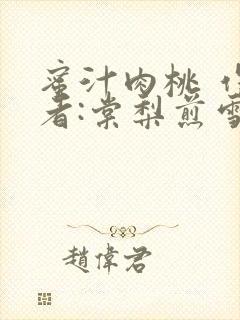 蜜汁肉桃 作
者:棠梨煎雪
趙偉君